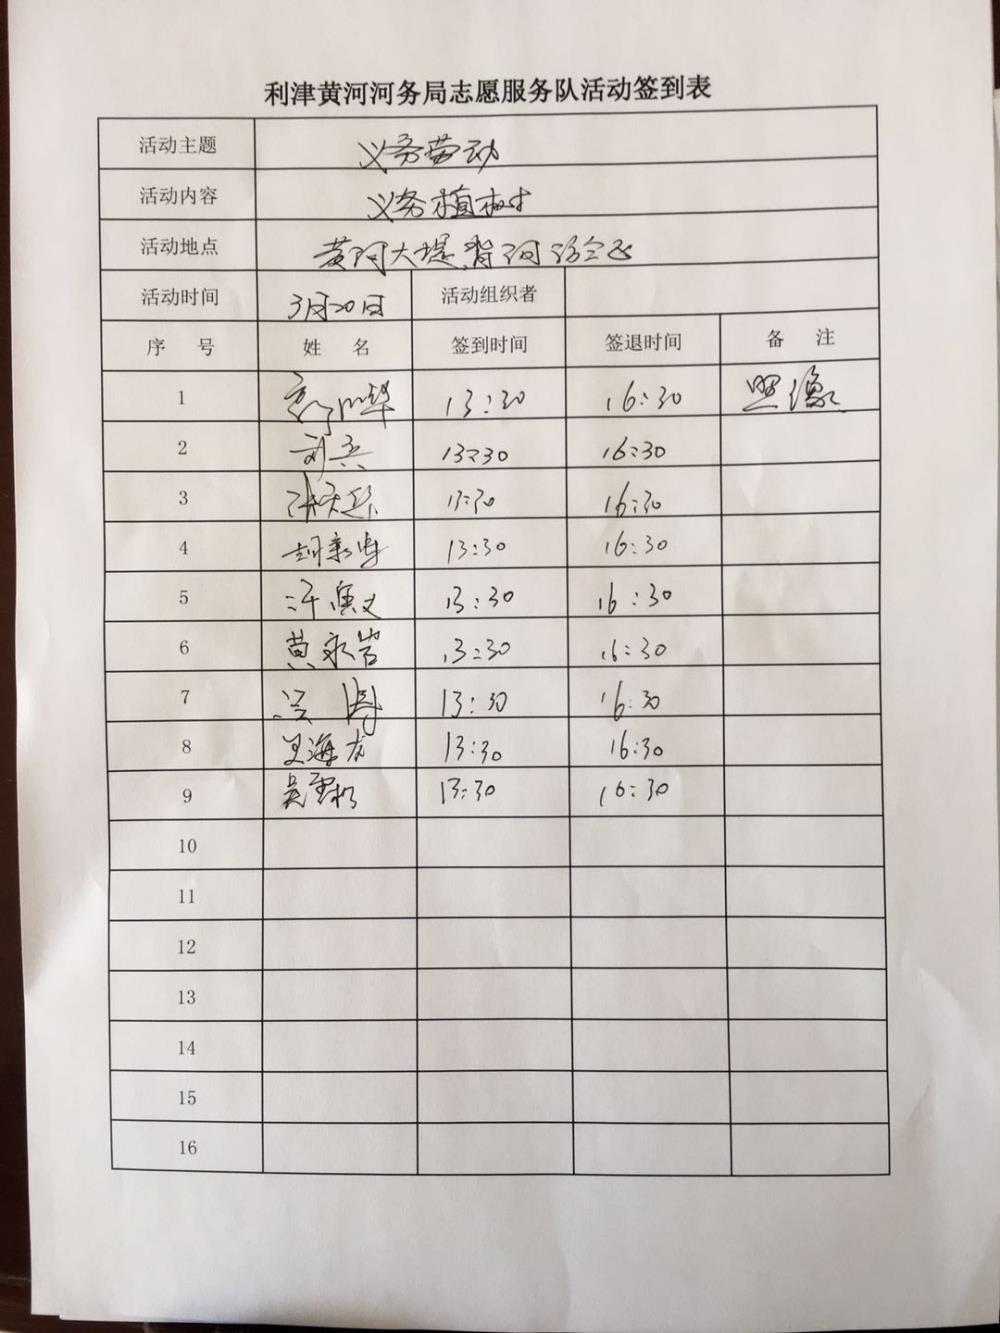 利津黄河河务局志愿服务队活动签到表
活动主题 义务劳动
活动内容 义务植树
活动地点 黄河大堤背河
活动时间 3月20日 活动组织者
序 号 姓 名 签到时间 签退时间 备 注
1 13:30 16:30 照像
2 刘兵 13:30 16:30
3 13:30 16:30
4 胡新 13:30 16:30
5 13:30 16:30
6 黄永岩 13:30 16:30
7 吴涛 13:30 16:30
8 王海龙 13:30 16:30
9 吴 13:30 16:30
10
11
12
13
14
15
16